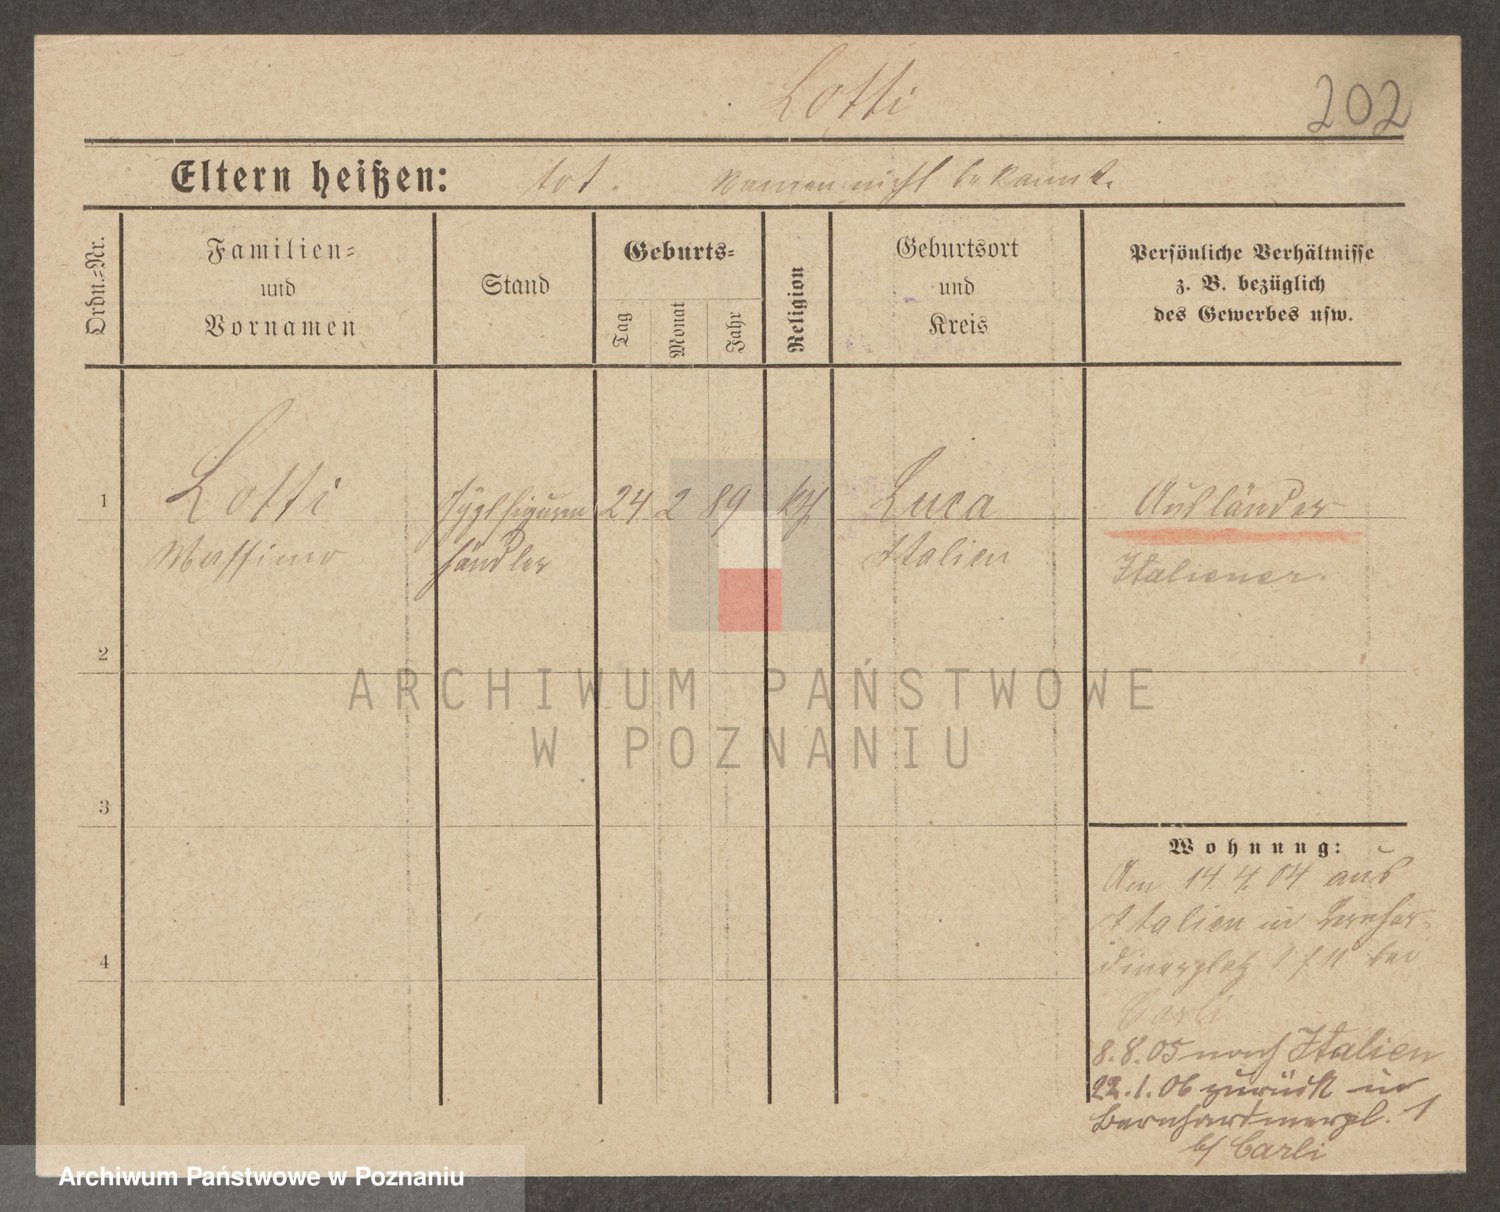 Lotti
202
Eltern heißen: tot. Namen nicht bekannt.
Ordn.-Nr.
Familien-
und
Vornamen
Stand
Geburts-
Tag
Monat
Jahr
Religion
Geburtsort
und
Kreis
Persönliche Verhältnisse
z. B. bezüglich
des Gewerbes usw.
1 Lotti Gypsfiguren 24 2 89 kth Luca Ausländer
Massimo händler Italien Italiener.
2
3
4
ARCHIWUM PAŃSTWOWE
W POZNANIU
Wohnung:
Am 14.4.04 aus
Italien in Bernhar-
dinerplatz 1 bei
Carli
8.8.05 nach Italien
22.1.06 zurück in
Bernhardinerpl. 1
b/ Carli
Archiwum Państwowe w Poznaniu